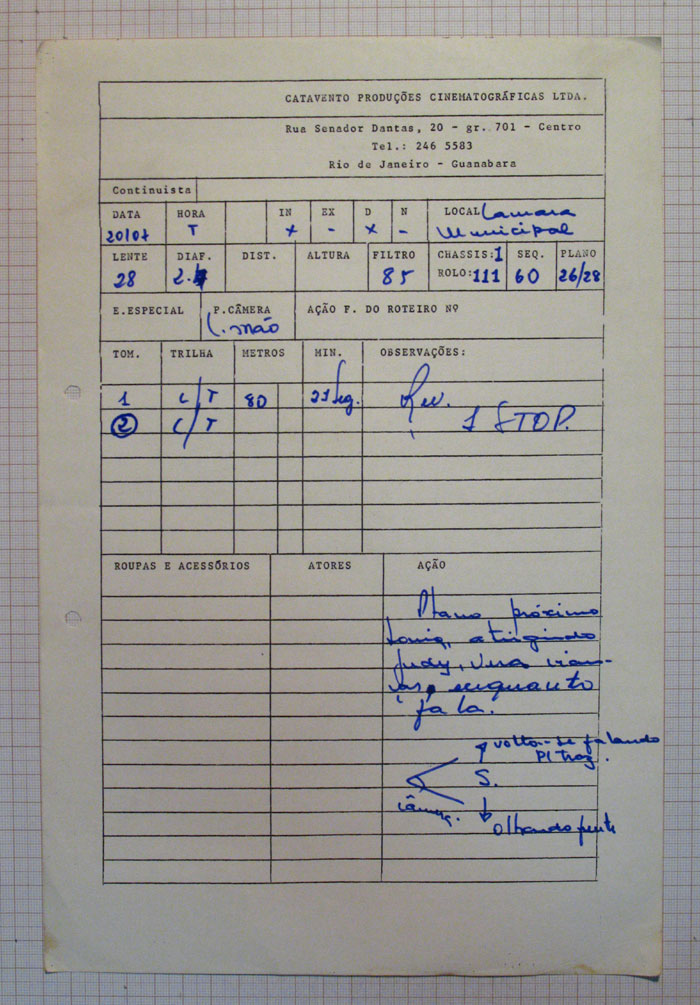 CATAVENTO PRODUÇÕES CINEMATOGRÁFICAS LTDA.
Rua Senador Dantas, 20 - gr. 701 - Centro
Tel.: 246 5583
Rio de Janeiro - Guanabara
Continuista
DATA HORA IN EX D N LOCAL Camara
20/07 T x - x - Municipal
LENTE DIAF. DIST. ALTURA FILTRO CHASSIS: 1 SEQ. PLANO
28 85 ROLO: 111 60 26/28
E.ESPECIAL P.CÂMERA AÇÃO F. DO ROTEIRO Nº
C. mão
TOM. TRILHA METROS MIN. OBSERVAÇÕES:
1 C/T 80 Seg. Rev.
2 C/T 1 STOP.
ROUPAS E ACESSÓRIOS ATORES AÇÃO
Plano próximo
atingindo
Judy, Vera
enquanto
fala.
volta-se falando
P/ traz.
S.
câmera.
Olhando